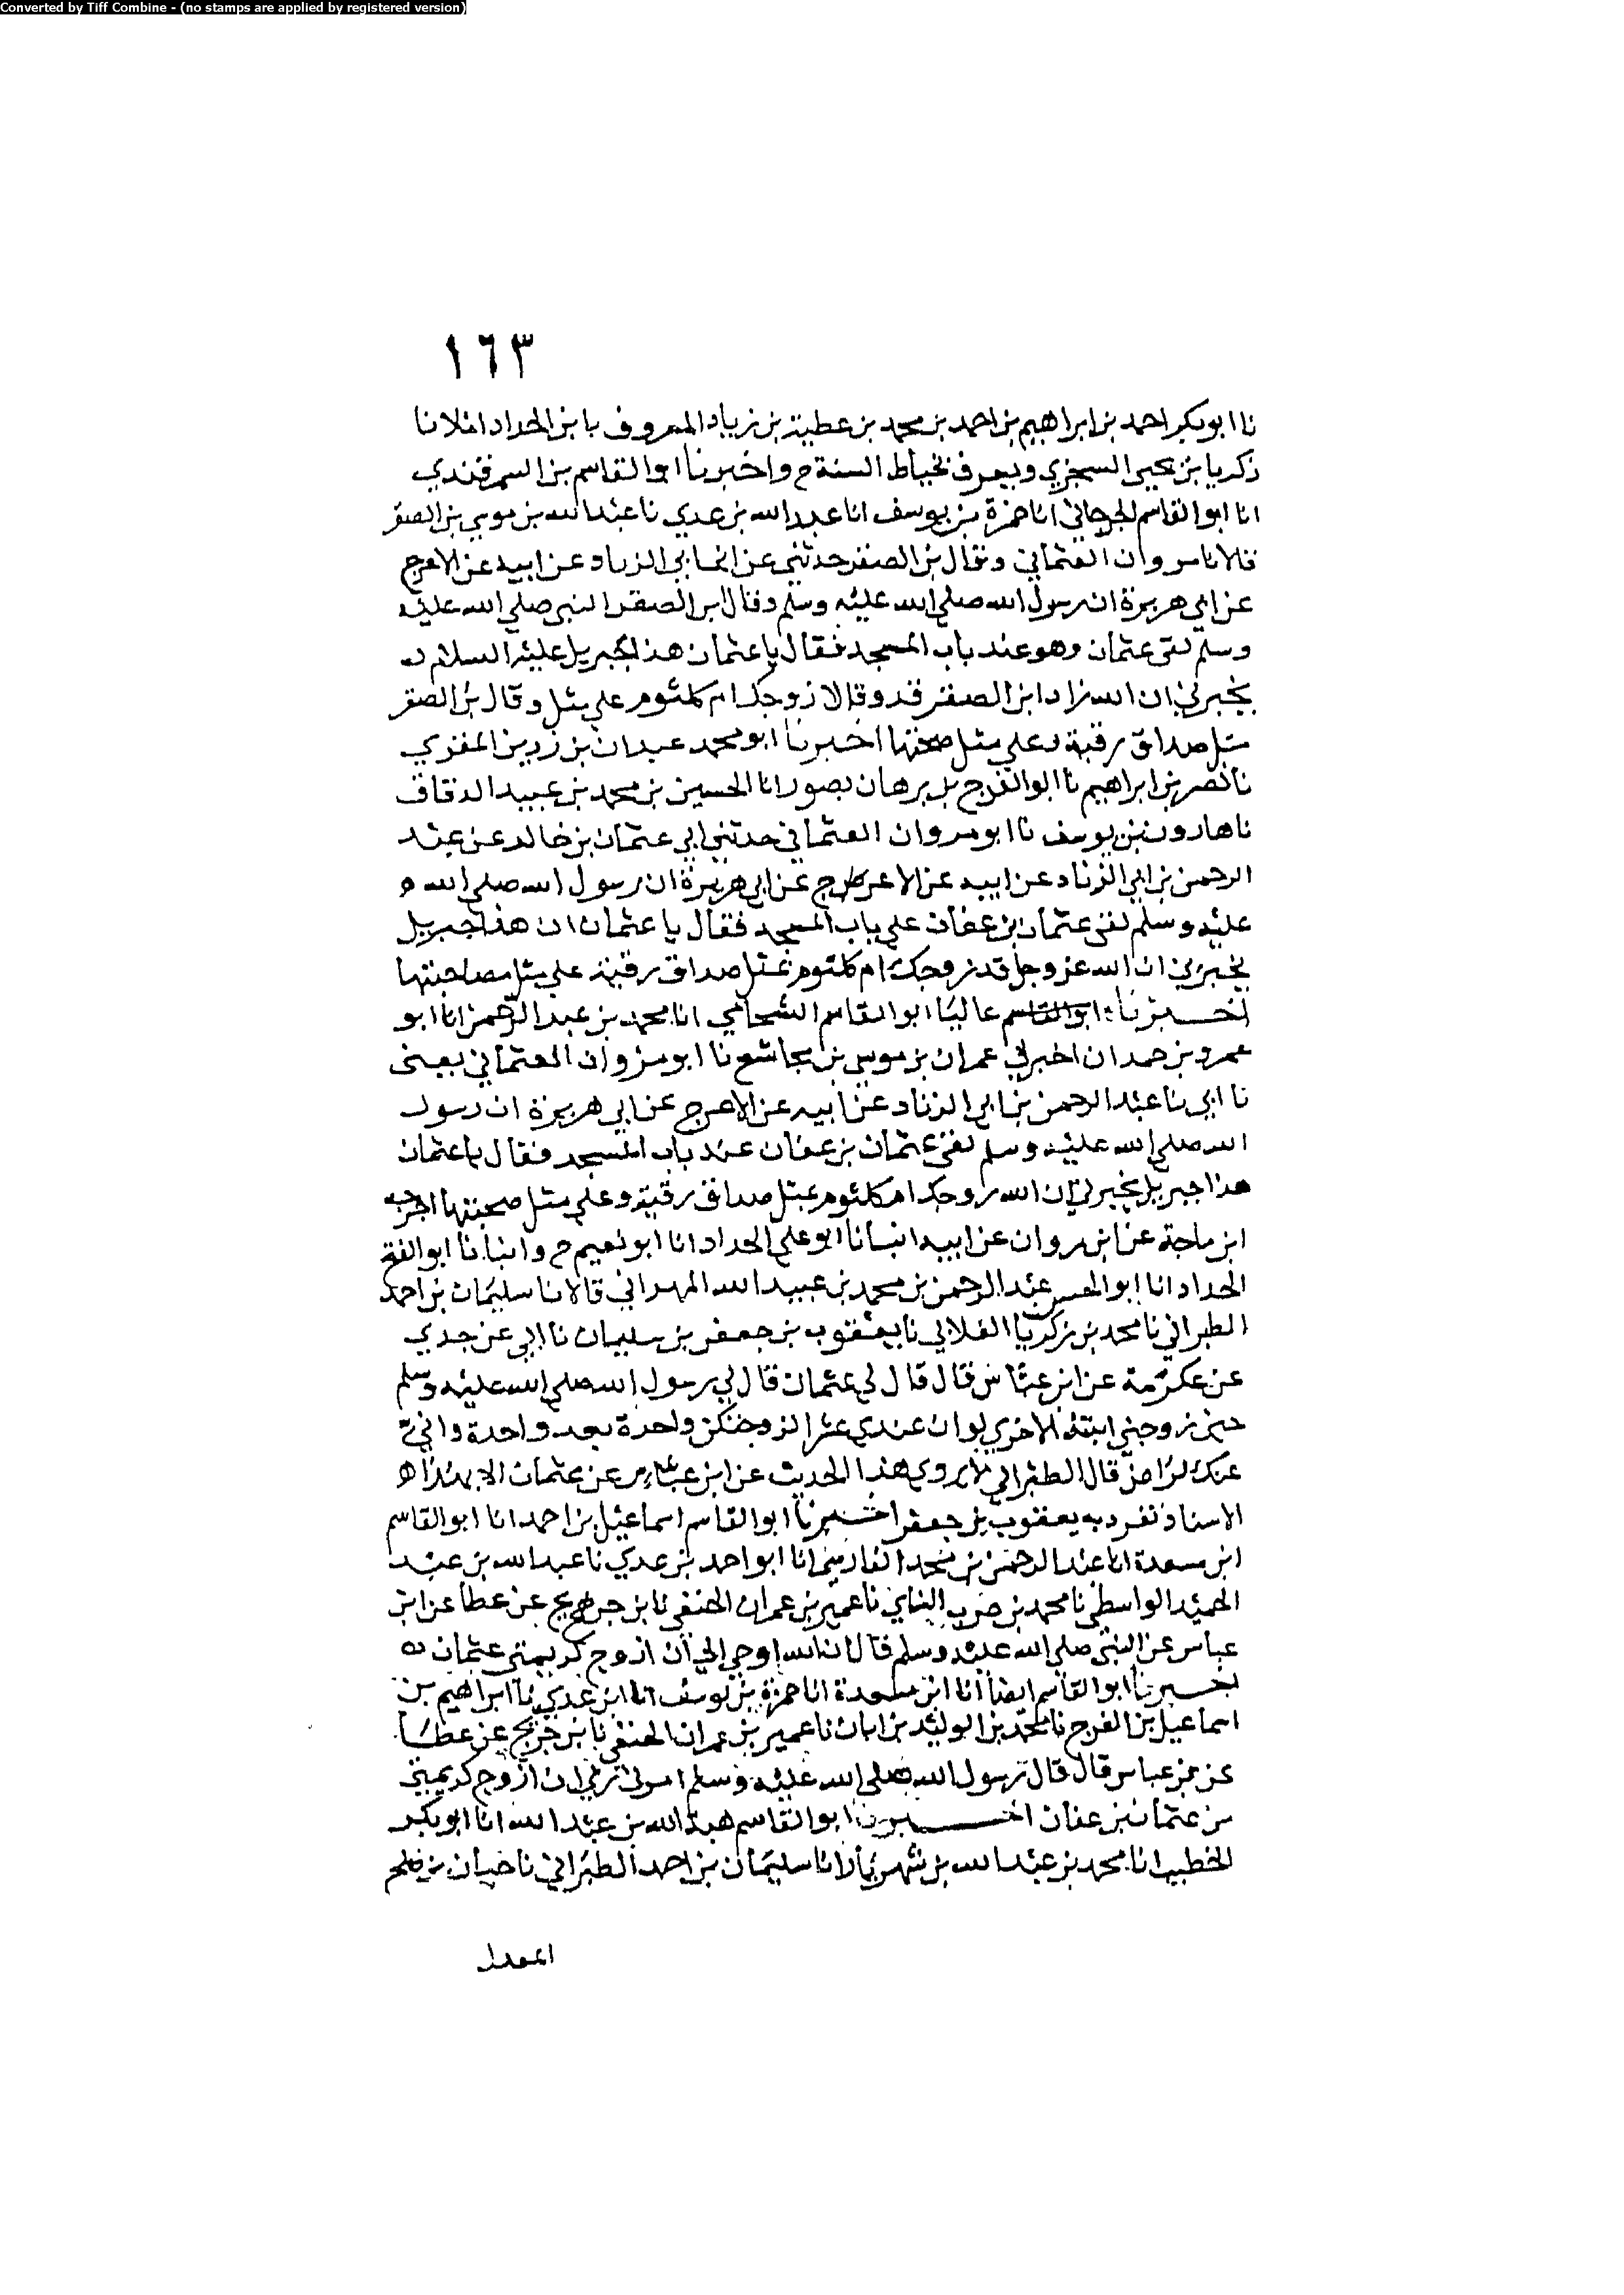 Converted by Tiff Combine - (no stamps are applied by registered version)
١٦٣
نا ابو بكر احمد بن ابراهيم بن احمد بن محمد بن عطية بن زياد المعروف بابن الحداد املانا
زكريا بن يحيى السجزي ويعرف بخياط السنة ح واخبرنا ابو القاسم بن السمرقندي
انا ابو القاسم الجرجاني انا حمزة بن يوسف انا عبد الله بن عدي نا عبد الله بن موسي بن الصقر
قالا نا مروان العثماني وقال بن الصقر حدثني عن ابي الزناد عن ابيه عن الاعرج
عن ابي هريرة ان رسول الله صلي الله عليه وسلم وقال ابن الصقر النبي صلي الله عليه
وسلم لقي عثمان وهو عند باب المسجد فقال يا عثمان هذا جبريل عليه السلام
يخبرني ان الله زاد ابن الصقر قد وقالا زوجك ام كلثوم علي مثل وقال بن الصقر
مثل صداق رقية وعلي مثل صحبتها اخبرنا ابو محمد عبدان بن زرين المقري
نا نصر بن ابراهيم نا ابو الفرج بن برهان بصور انا الحسين بن محمد بن عبيد الدقاق
نا هارون بن يوسف نا ابو مروان العثماني حدثني ابي عثمان بن خالد عن عبد
الرحمن بن ابي الزناد عن ابيه عن الاعرج عن ابي هريرة ان رسول الله صلي الله
عليه وسلم لقي عثمان بن عفان علي باب المسجد فقال يا عثمان ان هذا جبريل
يخبرني ان الله عز وجل قد زوجك ام كلثوم بمثل صداق رقية علي مثل مصاحبتها
اخبرنا ابو القاسم عاليا ابو القاسم الشحامي انا محمد بن عبد الرحمن انا ابو
عمرو بن حمدان اخبرني عمران بن موسي بن مجاشع نا ابو مروان العثماني يعني
نا ابي نا عبد الرحمن بن ابي الزناد عن ابيه عن الاعرج عن ابي هريرة ان رسول
الله صلي الله عليه وسلم لقي عثمان بن عفان عند باب المسجد فقال يا عثمان
هذا جبريل يخبرني ان الله زوجك ام كلثوم بمثل صداق رقية وعلي مثل صحبتها اخرجه
ابن ماجة عن ابي مروان عن ابيه انبانا ابو علي الحداد انا ابو نعيم ح وانبانا ابو الفتح
الحداد انا ابو الحسن عبد الرحمن بن محمد بن عبيد الله المهداني قالا نا سليمان بن احمد
الطبراني نا محمد بن زكريا الغلابي نا يعقوب بن جعفر بن سليمان نا ابي عن جدي
عن عكرمة عن ابن عباس قال قال لي عثمان قال لي رسول الله صلي الله عليه وسلم
حين زوجني ابنته الاخري لو ان عندي عشرا لزوجتكن واحدة بعد واحدة واني
عنك لراض قال الطبراني لا يروي هذا الحديث عن ابن عباس عن عثمان الا بهذا
الاسناد تفرد به يعقوب بن جعفر اخبرنا ابو القاسم اسماعيل بن احمد انا ابو القاسم
ابن مسعدة انا عبد الرحمن بن محمد الفارسي انا ابو احمد بن عدي نا عبد الله بن عبد
الحميد الواسطي نا محمد بن حرب النشاي نا عمير بن عمران الحنفي نا بن جريج عن عطا عن ابن
عباس عن النبي صلي الله عليه وسلم قال ان الله اوحي الي ان ازوج كريمتي عثمان
اخبرنا ابو القاسم ايضا انا ابن مسعدة انا حمزة بن يوسف انا ابن عدي نا ابراهيم بن
اسماعيل بن الفرج نا محمد بن الوليد بن ابان نا عمير بن عمران الحنفي نا بن جريج عن عطا
عن بن عباس قال قال رسول الله صلي الله عليه وسلم امرني ربي ان ازوج كريمتي
من عثمان بن عفان اخبرنا ابو القاسم هبة الله بن عبد الله انا ابو بكر
الخطيب انا محمد بن عبد الله بن شهريار انا سليمان بن احمد الطبراني نا خيان بن
المعدل